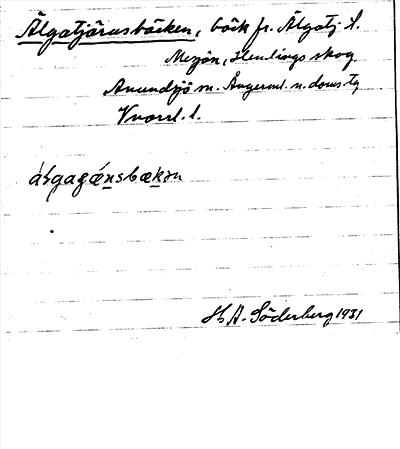 Älgatjärnsbäcken, bäck fr. Älgatj. t.
Mesjön, Hemlings skog
Anundsjö sn. Ångerml. n. doms. tg
Vnorrl. l.
H. A. Söderberg 1931